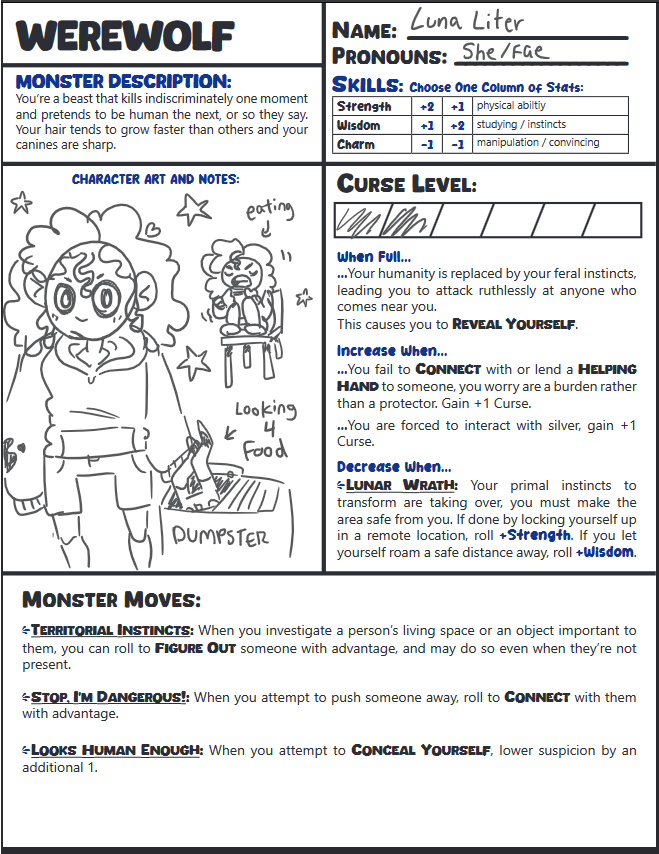 WEREWOLF
MONSTER DESCRIPTION:
You're a beast that kills indiscriminately one moment
and pretends to be human the next, or so they say.
Your hair tends to grow faster than others and your
canines are sharp.
NAME: Luna Liter
PRONOUNS: She/Fae
SKILLS: Choose One Column of Stats:
Strength +2 +1 physical abiltiy
Wisdom +1 +2 studying / instincts
Charm -1 -1 manipulation / convincing
CHARACTER ART AND NOTES:
eating
Looking
4
Food
DUMPSTER
CURSE LEVEL:
When Full...
...Your humanity is replaced by your feral instincts,
leading you to attack ruthlessly at anyone who
comes near you.
This causes you to REVEAL YOURSELF.
Increase When...
...You fail to CONNECT with or lend a HELPING
HAND to someone, you worry are a burden rather
than a protector. Gain +1 Curse.
...You are forced to interact with silver, gain +1
Curse.
Decrease When...
LUNAR WRATH: Your primal instincts to
transform are taking over, you must make the
area safe from you. If done by locking yourself up
in a remote location, roll +Strength. If you let
yourself roam a safe distance away, roll +Wisdom.
MONSTER MOVES:
TERRITORIAL INSTINCTS: When you investigate a person's living space or an object important to
them, you can roll to FIGURE OUT someone with advantage, and may do so even when they're not
present.
STOP, I'M DANGEROUS!: When you attempt to push someone away, roll to CONNECT with them
with advantage.
LOOKS HUMAN ENOUGH: When you attempt to CONCEAL YOURSELF, lower suspicion by an
additional 1.